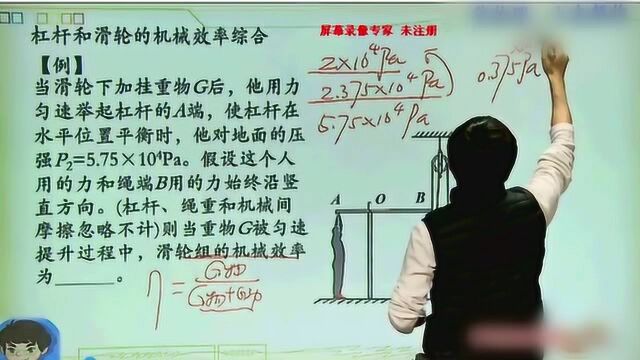 杠杆和滑轮的机械效率综合
屏幕录像专家 未注册
【例】
当滑轮下加挂重物G后，他用力
匀速举起杠杆的A端，使杠杆在
水平位置平衡时，他对地面的压
强P₂=5.75×10⁴Pa。假设这个人
用的力和绳端B用的力始终沿竖
直方向。(杠杆、绳重和机械间
摩擦忽略不计)则当重物G被匀速
提升过程中，滑轮组的机械效率
为______。
2×10⁴Pa
2.375×10⁴Pa
5.75×10⁴Pa
0.375Pa
A O B
η = G物/(G物+G动)